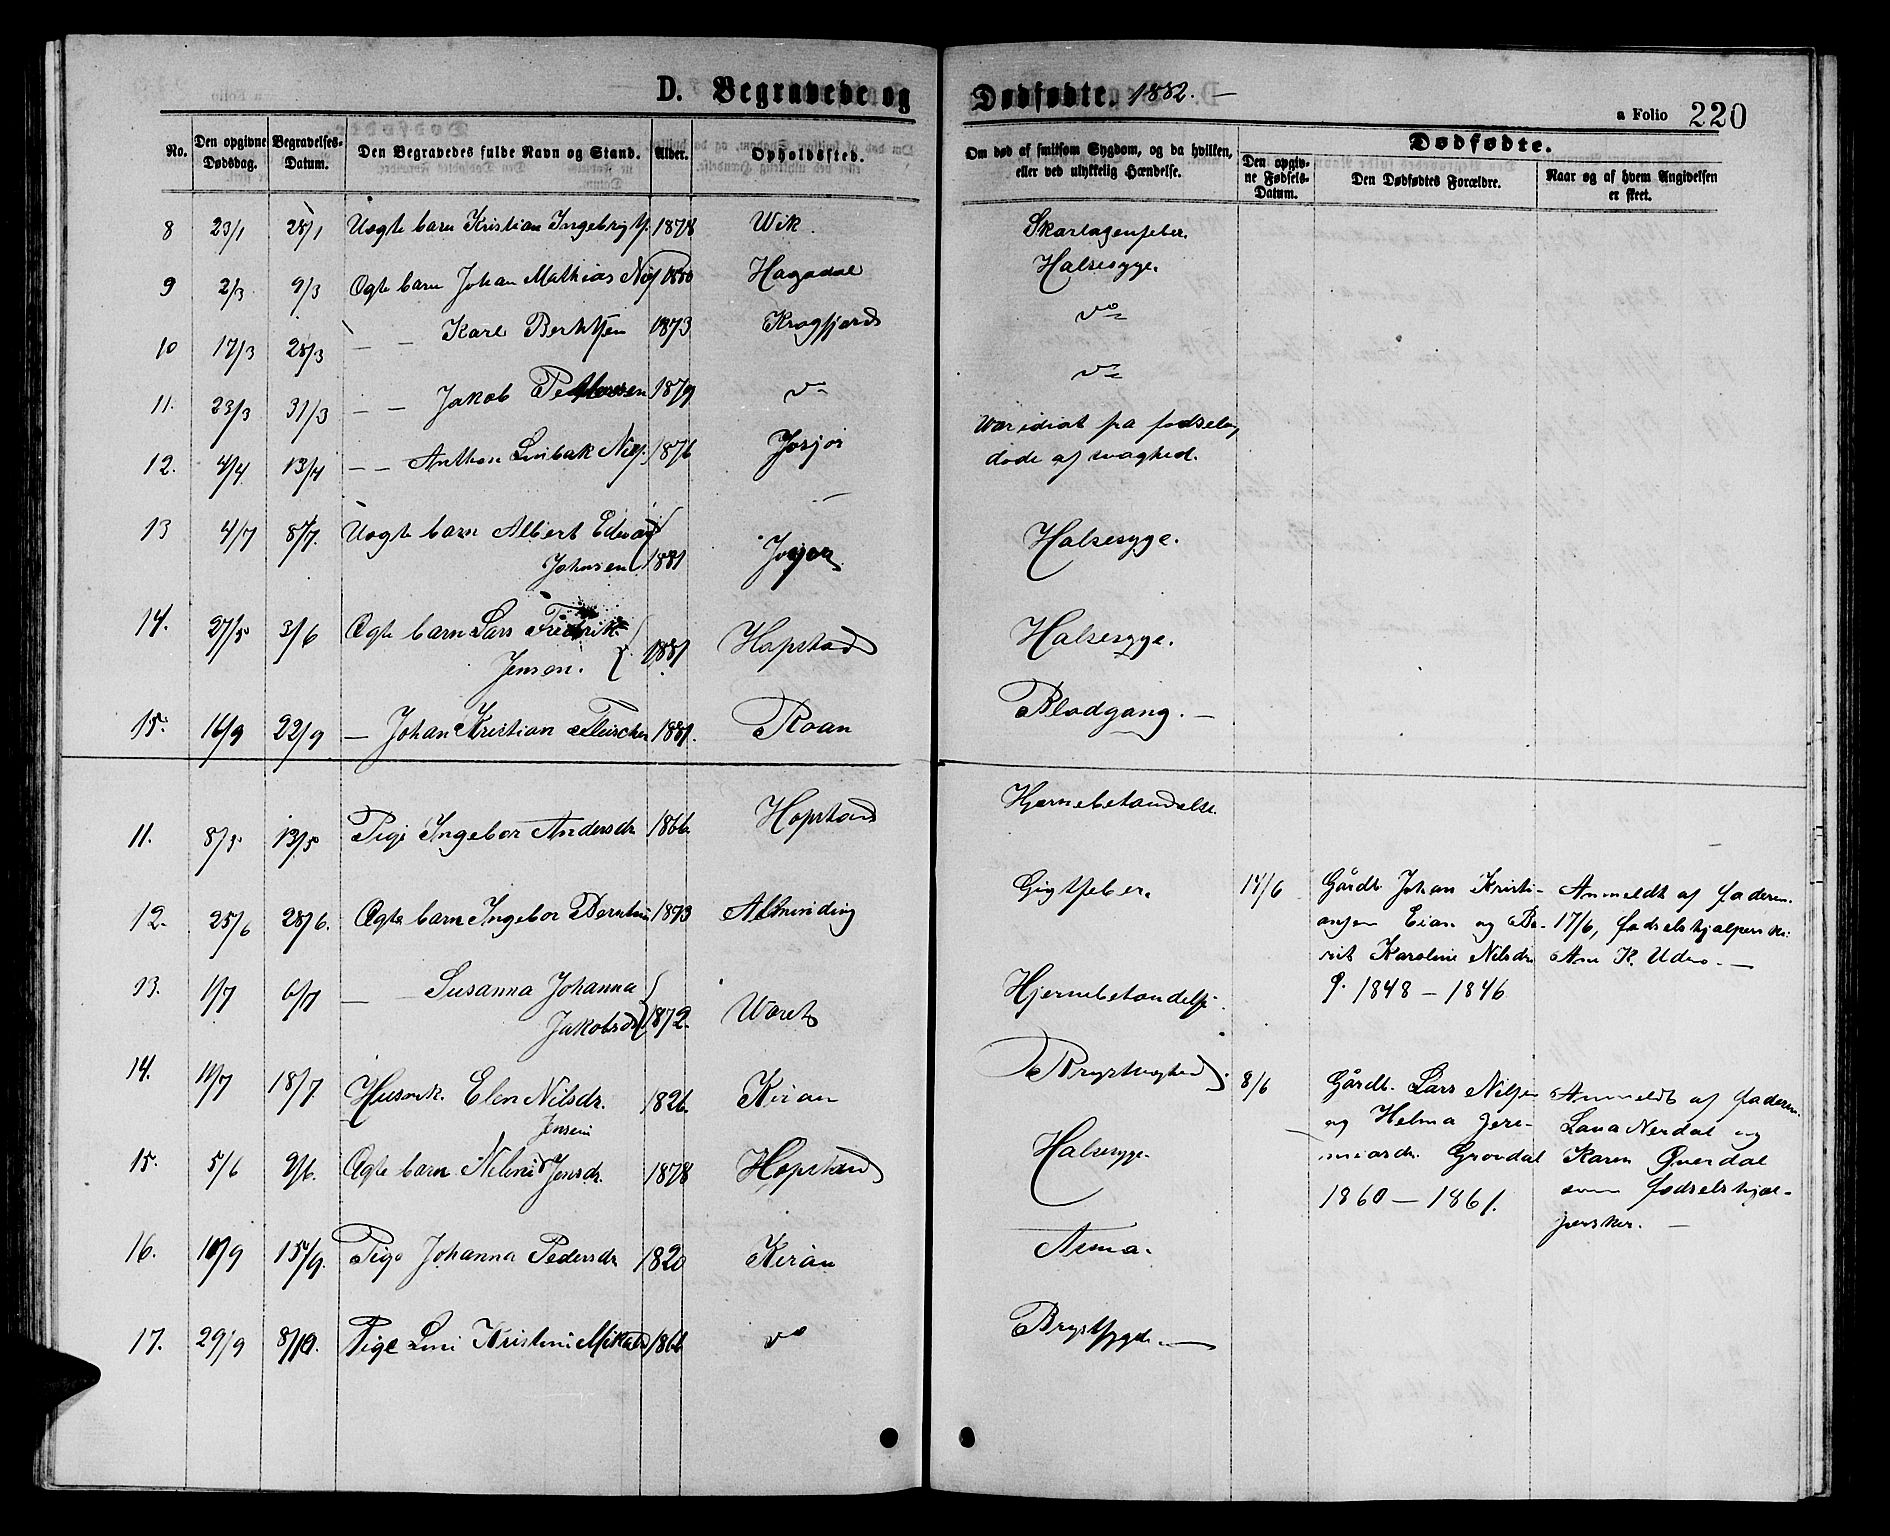 D. Begravede og Dødfødte. 1882. —
a Folio 220
No. Den opgivne Dødsdag. Begravelses-Datum. Den Begravedes fulde Navn og Stand. Alder. Opholdssted. Om død af smitsom Sygdom, og da hvilken, eller ved ulykkelig Hændelse.
Dødfødte.
Den opgivne Fødsels-Datum. Den Dødfødtes Forældre. Naar og af hvem Angivelsen er skeet.
8 23/1 28/1 Uægte barn Kristian Ingebrigts. 1878 Wik. Skarlagensfeber.
9 2/3 9/3 Ægte barn Johan Mathias 1880 Hagadal Halsesyge.
10 17/3 28/3 — — Karl Berntsen 1873 Kragfjord do
11. 23/3 31/3 — — Jakob Pettersen 1879 do do
12. 4/4 13/4 — — Anthon Nils. 1876 Jøsjør War idiot fra fødsel og
døde af svaghed.
13 4/7 8/7. Uægte barn Albert Edvard
Johnsen 1881 Halsesyge.
14. 27/5 3/6 Ægte barn Lars Fredrik
Jensen. 1881 Hopstad Halsesyge.
15. 16/9 22/9 — Johan Kristian Fleischer 1881. Roan Blodgang. —
11. 8/5 13/5 Pige Ingebor Andersdr 1866 Hopstad Hjernebetændelse.
12. 25/6 28/6. Ægte barn Ingebor 1873 Alminding Gigtfeber.
14/6 Gårdb. Johan Kristi-
ansen Eian og Be-
rit Karoline Nilsdr
f. 1848 — 1846
Anmeldt af faderen
17/6, fødselshjælperske:
Ane K. —
13. 1/7 6/7 — — Susanna Johanna
Jakobsdr 1872. Hjernebetændelse.
14. 11/7 18/7. Husmk. Elen Nilsdr.
Jensen 1826. Kiran Brystsyghed.
8/6 Gårdb. Lars Nilsen
og Helma Jere-
miasdr. Grovdal
1860 — 1861.
Anmeldt af faderen.
Lana Nerdal og
Karen Øverdal
som fødselshjæl-
persker. —
15. 5/6 9/6. Ægte barn Jensdr. 1878 Hopstad Halsesyge.
16. 10/9 15/9. Pige Johanna Pedersdr 1820 Kiran Asma.
17. 29/9 8/10. Pige Kristine 1866 do Brystsyge. —